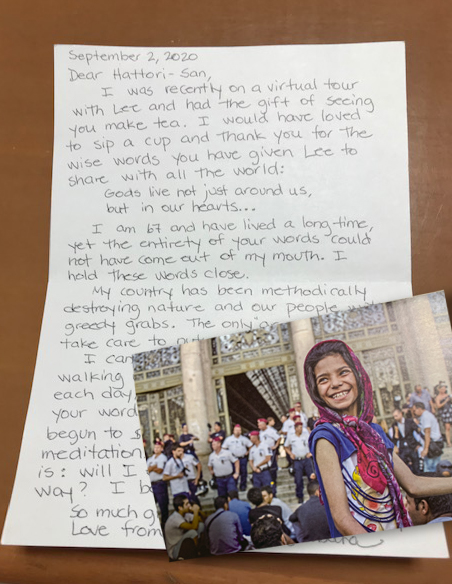 September 2, 2020
Dear Hattori-San,
I was recently on a virtual tour
with Lee and had the gift of seeing
you make tea. I would have loved
to sip a cup and thank you for the
wise words you have given Lee to
share with all the world:
Gods live not just around us,
but in our hearts...
I am 67 and have lived a long-time,
yet the entirety of your words could
not have come out of my mouth. I
hold these words close.
My country has been methodically
destroying nature and our people
greedy grabs. The only
take care to
I
walking
each day
your
begun to
meditation
is: will I
way? I
So much
Love from